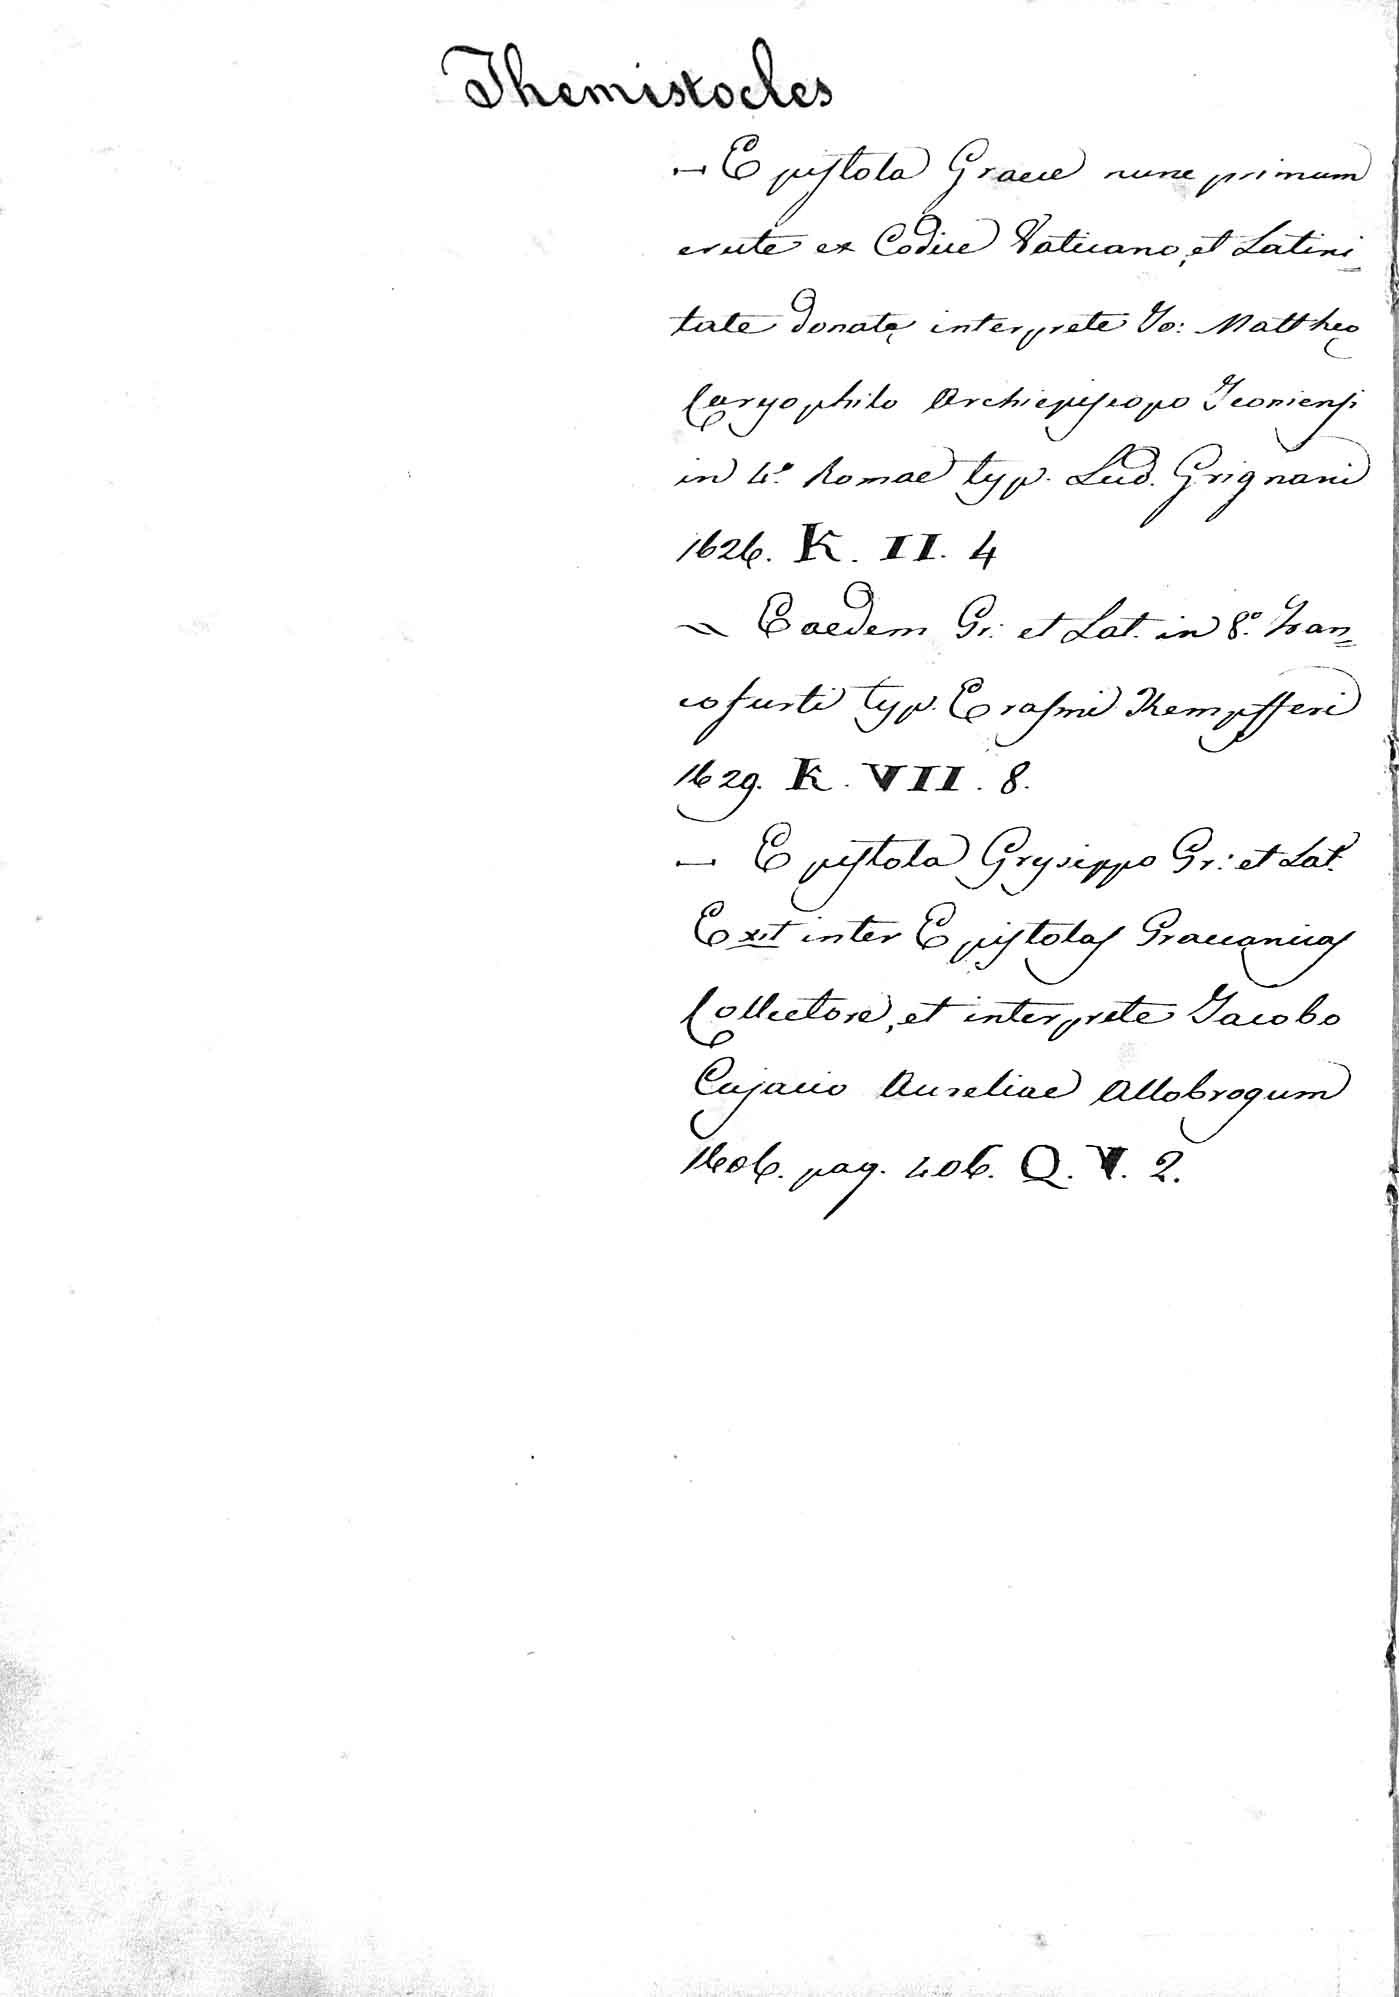 Themistocles
— Epistola Graece nunc primum
erute ex Codice Vaticano, et Latini=
tate donatę interprete Jo: Mattheo
Caryophilo Archiepiscopo Iconiensi
in 4.º Romae typ. Lud. Grignani
1626. K. II. 4
— Eaedem Gr: et Lat. in 8.º Fran=
cofurti typ. Erasmi Kempfferi
1629. K. VII. 8.
— Epistola Grysippo Gr: et Lat.
Exit inter Epistolas Graecanicas
Collectore, et interprete Jacobo
Cujacio Aureliae Allobrogum
1606. pag. 406. Q. V. 2.